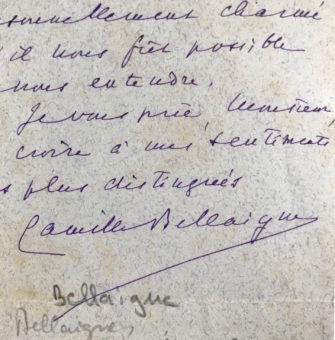 sonnellement charmé
s'il nous fût possible
nous entendre.
Je vous prie, Monsieur,
croire à mes sentiments
s plus distingués
Camille Bellaigue
Bellaigue
Bellaigue